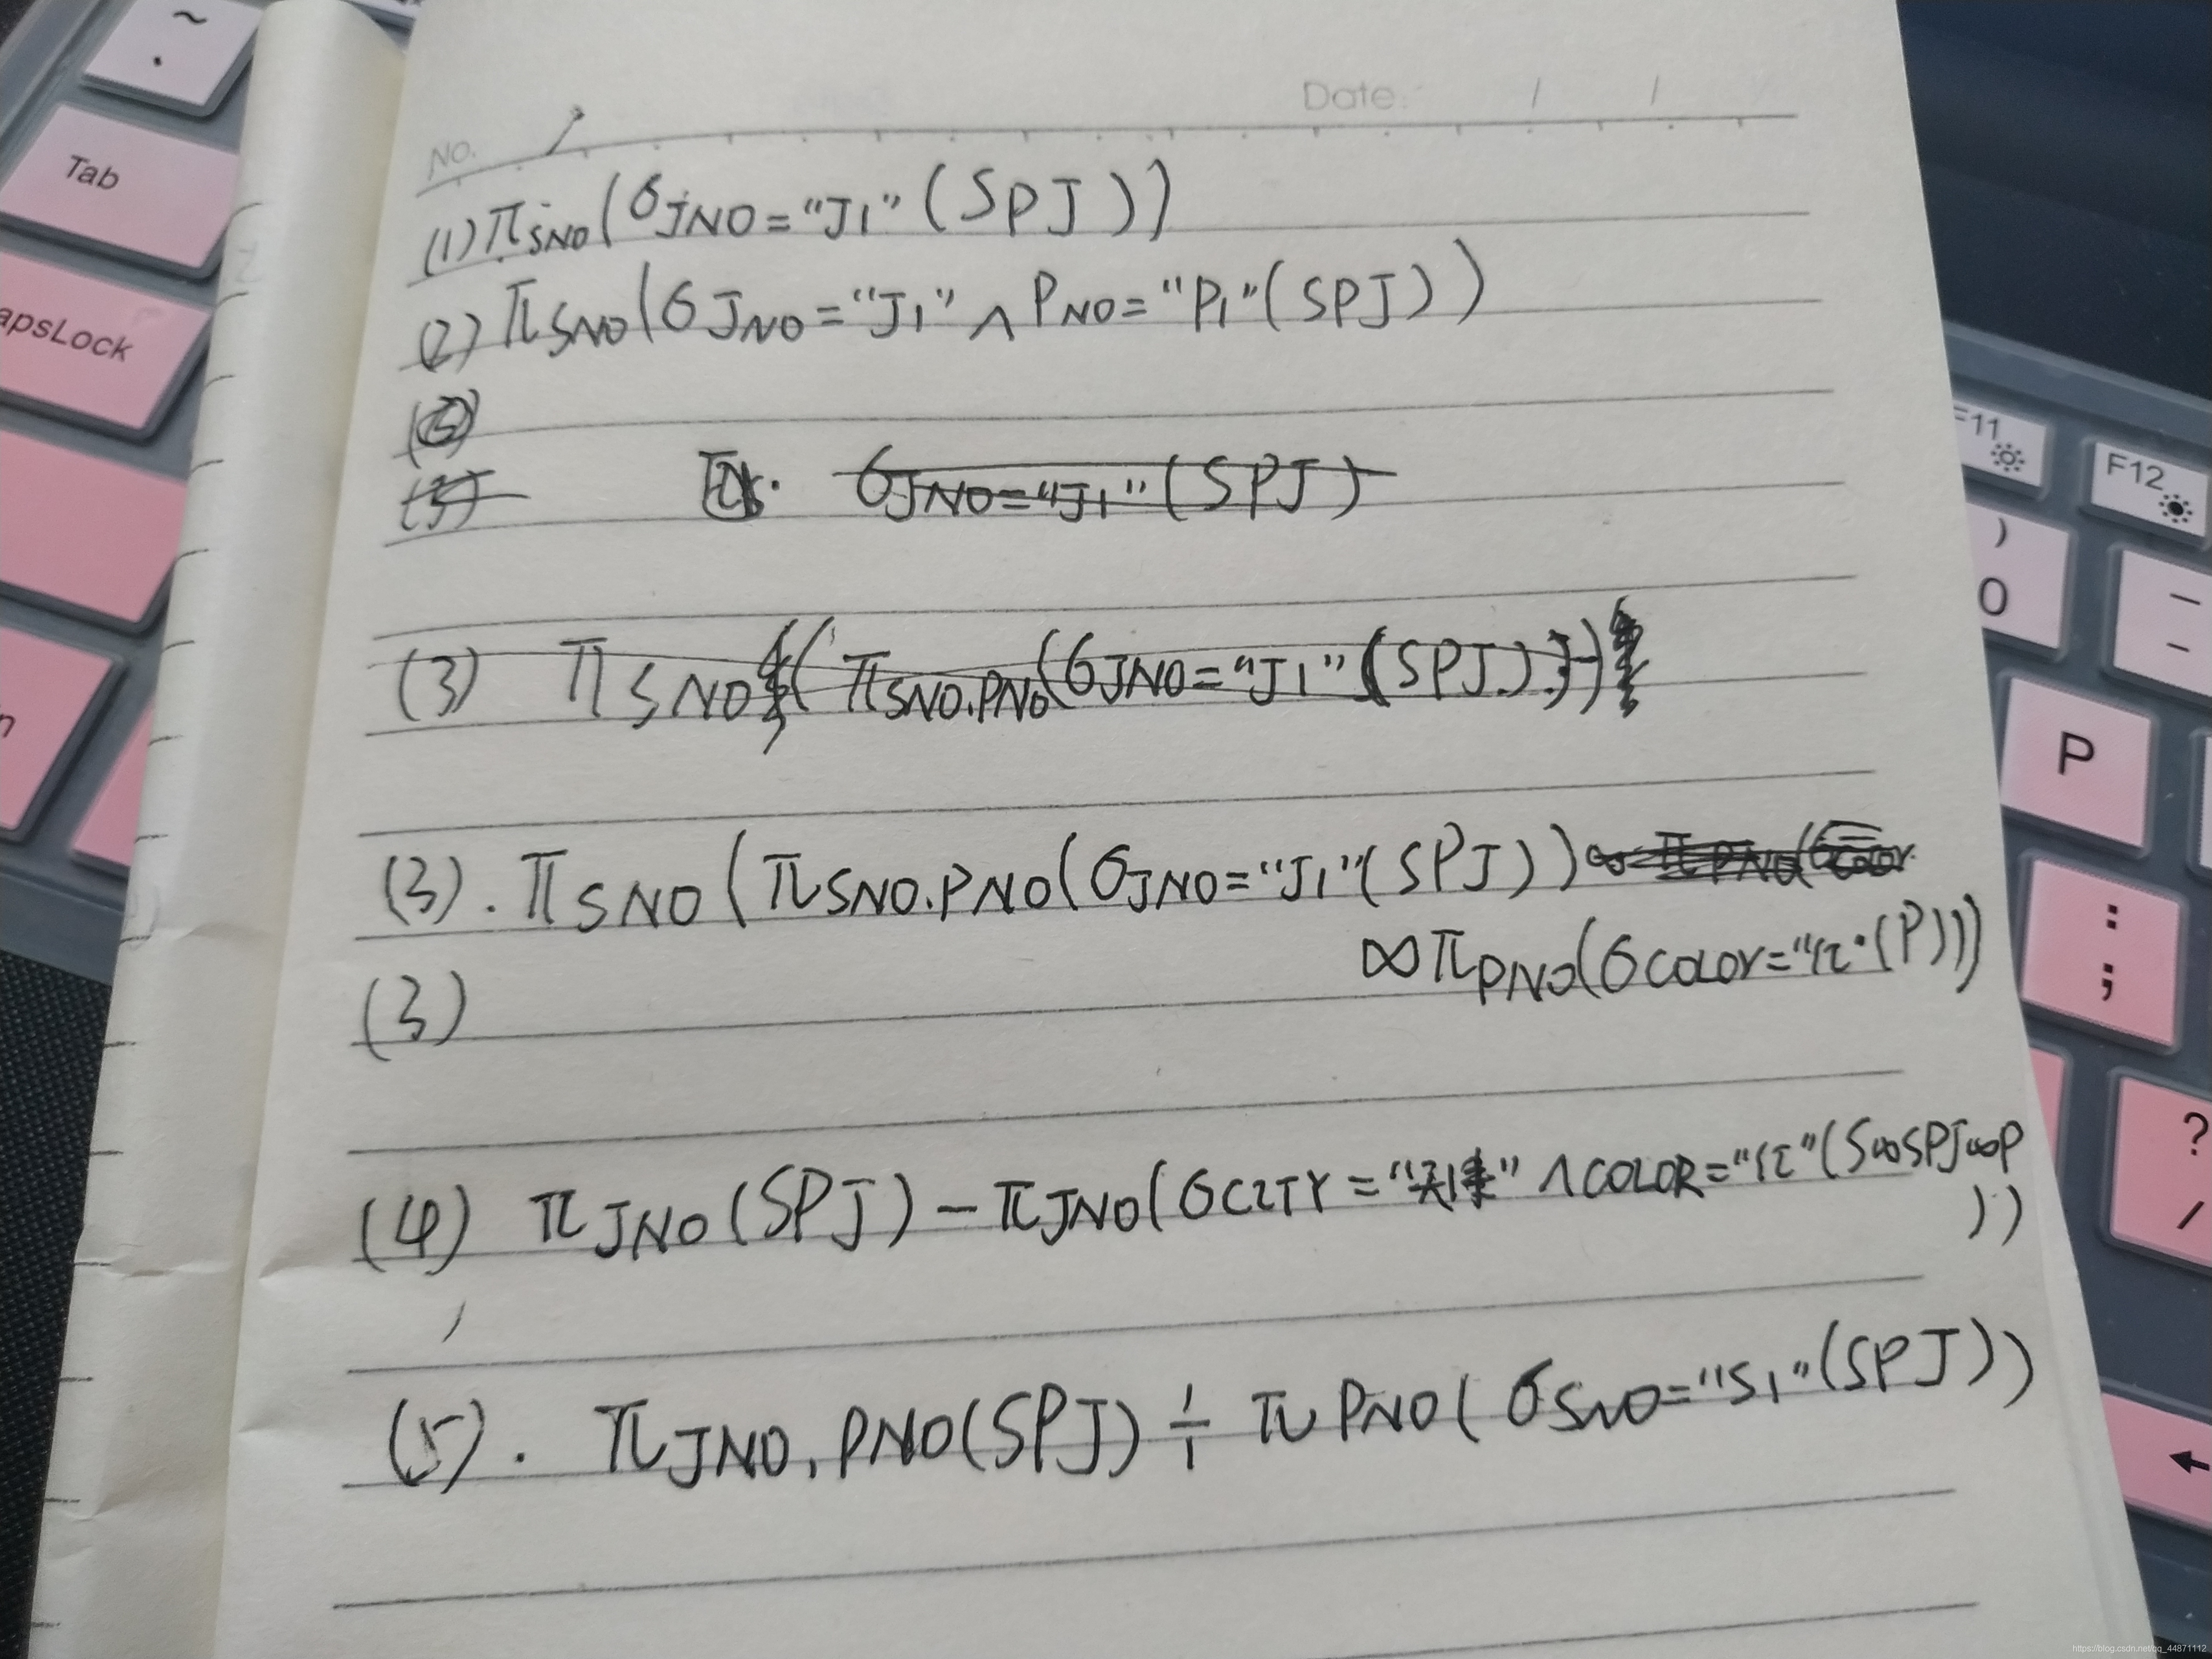 ~
Tab
apsLock
No.
Date:   /   /
(1) π SNO (σ JNO = "J1" (SPJ))
(2) π SNO (σ JNO = "J1" ∧ PNO = "P1" (SPJ))
(3)
σ JNO = "J1" (SPJ)
(3) π SNO ( π SNO.PNO (σ JNO = "J1" (SPJ)))
(3). π SNO ( π SNO.PNO (σ JNO = "J1" (SPJ))
∞ π PNO (σ COLOR = "红" (P)))
(3)
(4) π JNO (SPJ) − π JNO (σ CITY = "天津" ∧ COLOR = "红" (S∞SPJ∞P
))
(5). π JNO, PNO (SPJ) ÷ π PNO (σ SNO = "S1" (SPJ))
F11
F12
)
0
P
:
;
?
/
https://blog.csdn.net/qq_44871112